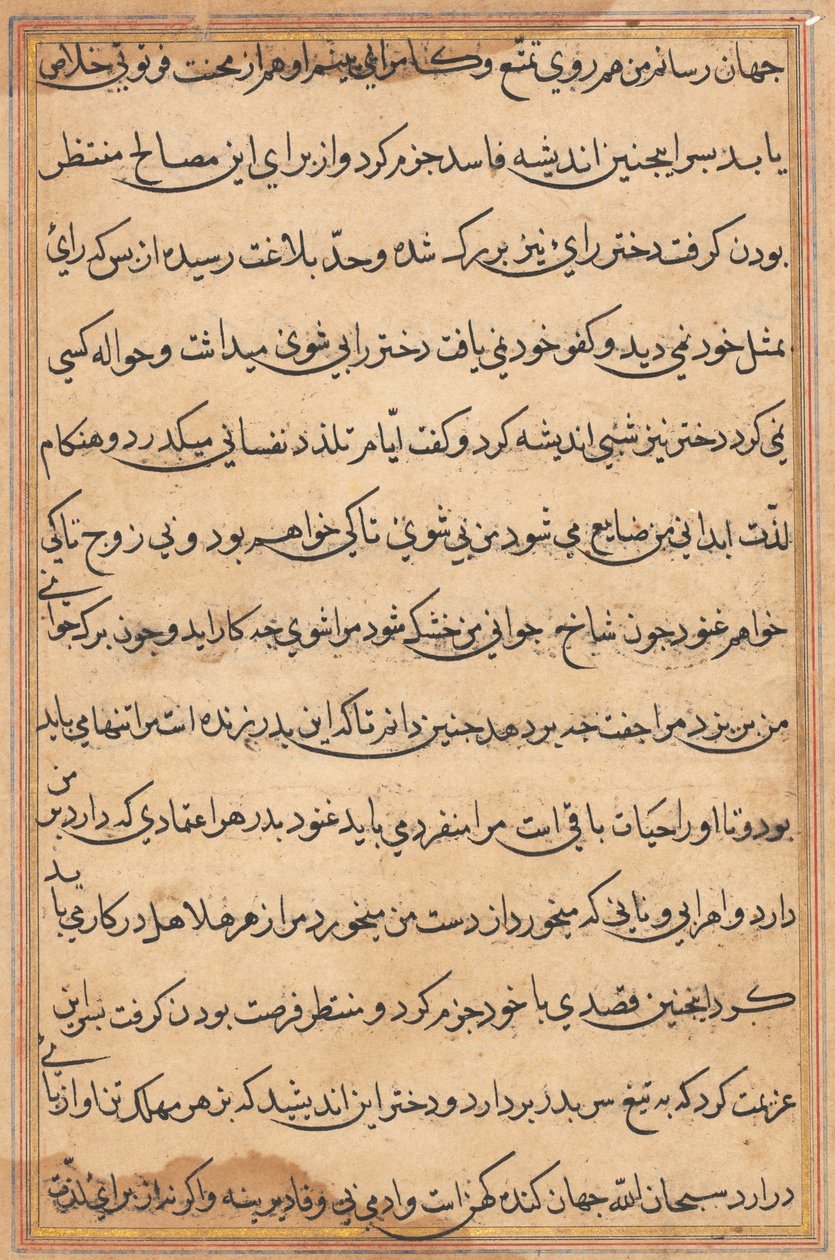 جهان رسانم من هم روي تمتّع وكامراني بينم او هم از محنت فرتوتي خلاص
يابد بسر اينجنين انديشه فاسد جزم كرد و از براي اين مصالح منتظر
بودن كرفت دختر رائ نيز بزرك شده وحدّ بلاغت رسيده از بس كه رائ
مثل خود نمي ديد و كفو خود نمي يافت دختر را بي شوي ميداشت و حواله كسي
نمي كرد دختر نيز شبي انديشه كرد و كفت ايّام تلذذ نفساني ميكذرد و هنكام
لذّت ابداني من ضايع مي شود من بي شوي تا كي خواهم بود و بي زوج تا كي
خواهم غنود جون شاخ جواني من خشك شود مرا شوي جه كار ايد و جون برك جواني
من بريزد مرا جفت جه بر دهد جنين دانم تا كه اين بدر زنده است مرا تنها مي بايد
بود و تا او را حيات باقي است مرا منفرد مي بايد غنود بدر هر اعتمادي كه دارد بر من
دارد و اهر ابي و ناني كه ميخورد از دست من ميخورد مرا زهر هلاهل در كار مي بايد
كرد اينجنين قصدي با خود جزم كرد و منتظر فرصت بودن كرفت بسر اين
عزيمت كرد كه به تيغ سر بدر بردارد و دختر اين انديشيد كه بزهر مهلك تن او از بائ
درارد سبحان الله جهان كنده كهن است و ادمي بي وفا ديرينه و اكر نه از براي لذّت